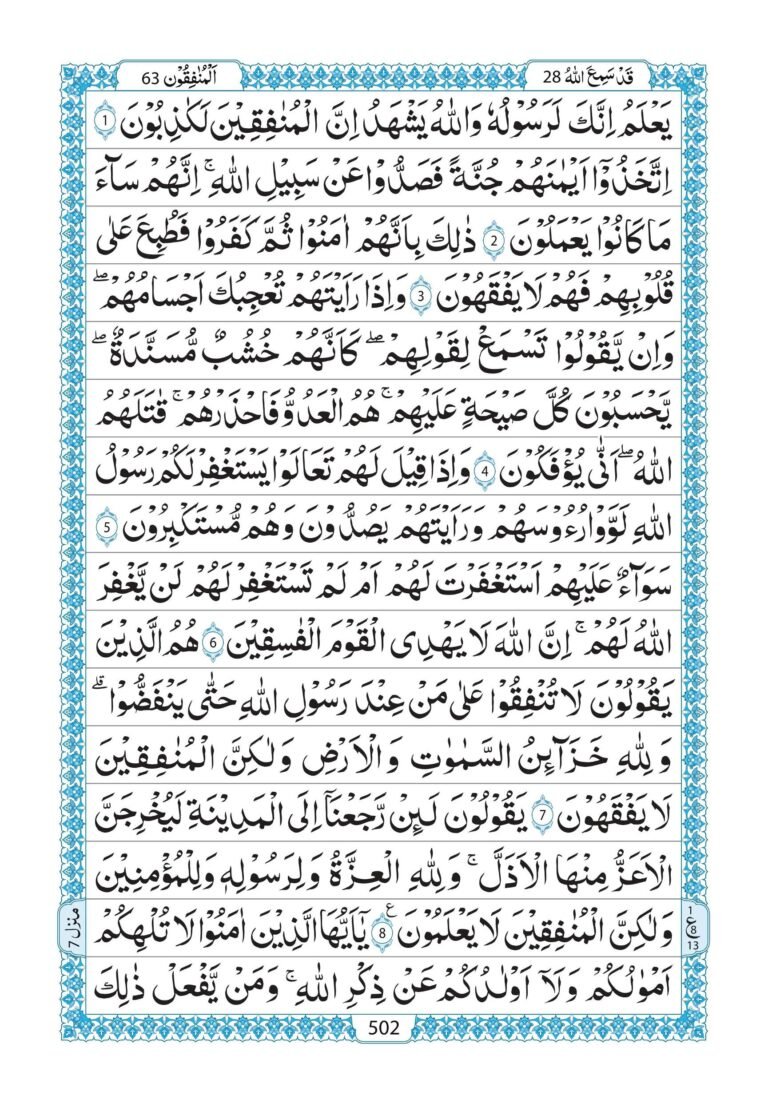 قَدْ سَمِعَ اللّٰهُ 28
اَلْمُنٰفِقُوْن 63
يَعْلَمُ اِنَّكَ لَرَسُوْلُهٗ ؕ وَاللّٰهُ يَشْهَدُ اِنَّ الْمُنٰفِقِيْنَ لَكٰذِبُوْنَ 1
اِتَّخَذُوْۤا اَيْمٰنَهُمْ جُنَّةً فَصَدُّوْا عَنْ سَبِيْلِ اللّٰهِ ۚ اِنَّهُمْ سَآءَ
مَا كَانُوْا يَعْمَلُوْنَ 2 ذٰلِكَ بِاَنَّهُمْ اٰمَنُوْا ثُمَّ كَفَرُوْا فَطُبِعَ عَلٰى
قُلُوْبِهِمْ فَهُمْ لَا يَفْقَهُوْنَ 3 وَاِذَا رَاَيْتَهُمْ تُعْجِبُكَ اَجْسَامُهُمْ ۖ
وَاِنْ يَّقُوْلُوْا تَسْمَعْ لِقَوْلِهِمْ ۖ كَاَنَّهُمْ خُشُبٌ مُّسَنَّدَةٌ ۖ
يَّحْسَبُوْنَ كُلَّ صَيْحَةٍ عَلَيْهِمْ ۚ هُمُ الْعَدُوُّ فَاحْذَرْهُمْ ۚ قٰتَلَهُمُ
اللّٰهُ ۖ اَنّٰى يُؤْفَكُوْنَ 4 وَاِذَا قِيْلَ لَهُمْ تَعَالَوْا يَسْتَغْفِرْ لَكُمْ رَسُوْلُ
اللّٰهِ لَوَّوْا رُءُوْسَهُمْ وَرَاَيْتَهُمْ يَصُدُّوْنَ وَهُمْ مُّسْتَكْبِرُوْنَ 5
سَوَآءٌ عَلَيْهِمْ اَسْتَغْفَرْتَ لَهُمْ اَمْ لَمْ تَسْتَغْفِرْ لَهُمْ لَنْ يَّغْفِرَ
اللّٰهُ لَهُمْ ۚ اِنَّ اللّٰهَ لَا يَهْدِى الْقَوْمَ الْفٰسِقِيْنَ 6 هُمُ الَّذِيْنَ
يَقُوْلُوْنَ لَا تُنْفِقُوْا عَلٰى مَنْ عِنْدَ رَسُوْلِ اللّٰهِ حَتّٰى يَنْفَضُّوْا ۗ
وَلِلّٰهِ خَزَآئِنُ السَّمٰوٰتِ وَالْاَرْضِ وَلٰكِنَّ الْمُنٰفِقِيْنَ
لَا يَفْقَهُوْنَ 7 يَقُوْلُوْنَ لَئِنْ رَّجَعْنَاۤ اِلَى الْمَدِيْنَةِ لَيُخْرِجَنَّ
الْاَعَزُّ مِنْهَا الْاَذَلَّ ۚ وَلِلّٰهِ الْعِزَّةُ وَلِرَسُوْلِهٖ وَلِلْمُؤْمِنِيْنَ
وَلٰكِنَّ الْمُنٰفِقِيْنَ لَا يَعْلَمُوْنَ 8 ع يٰۤاَيُّهَا الَّذِيْنَ اٰمَنُوْا لَا تُلْهِكُمْ
اَمْوٰلُكُمْ وَلَاۤ اَوْلٰدُكُمْ عَنْ ذِكْرِ اللّٰهِ ۚ وَمَنْ يَّفْعَلْ ذٰلِكَ
1 ع 8 13
منزل 7
502